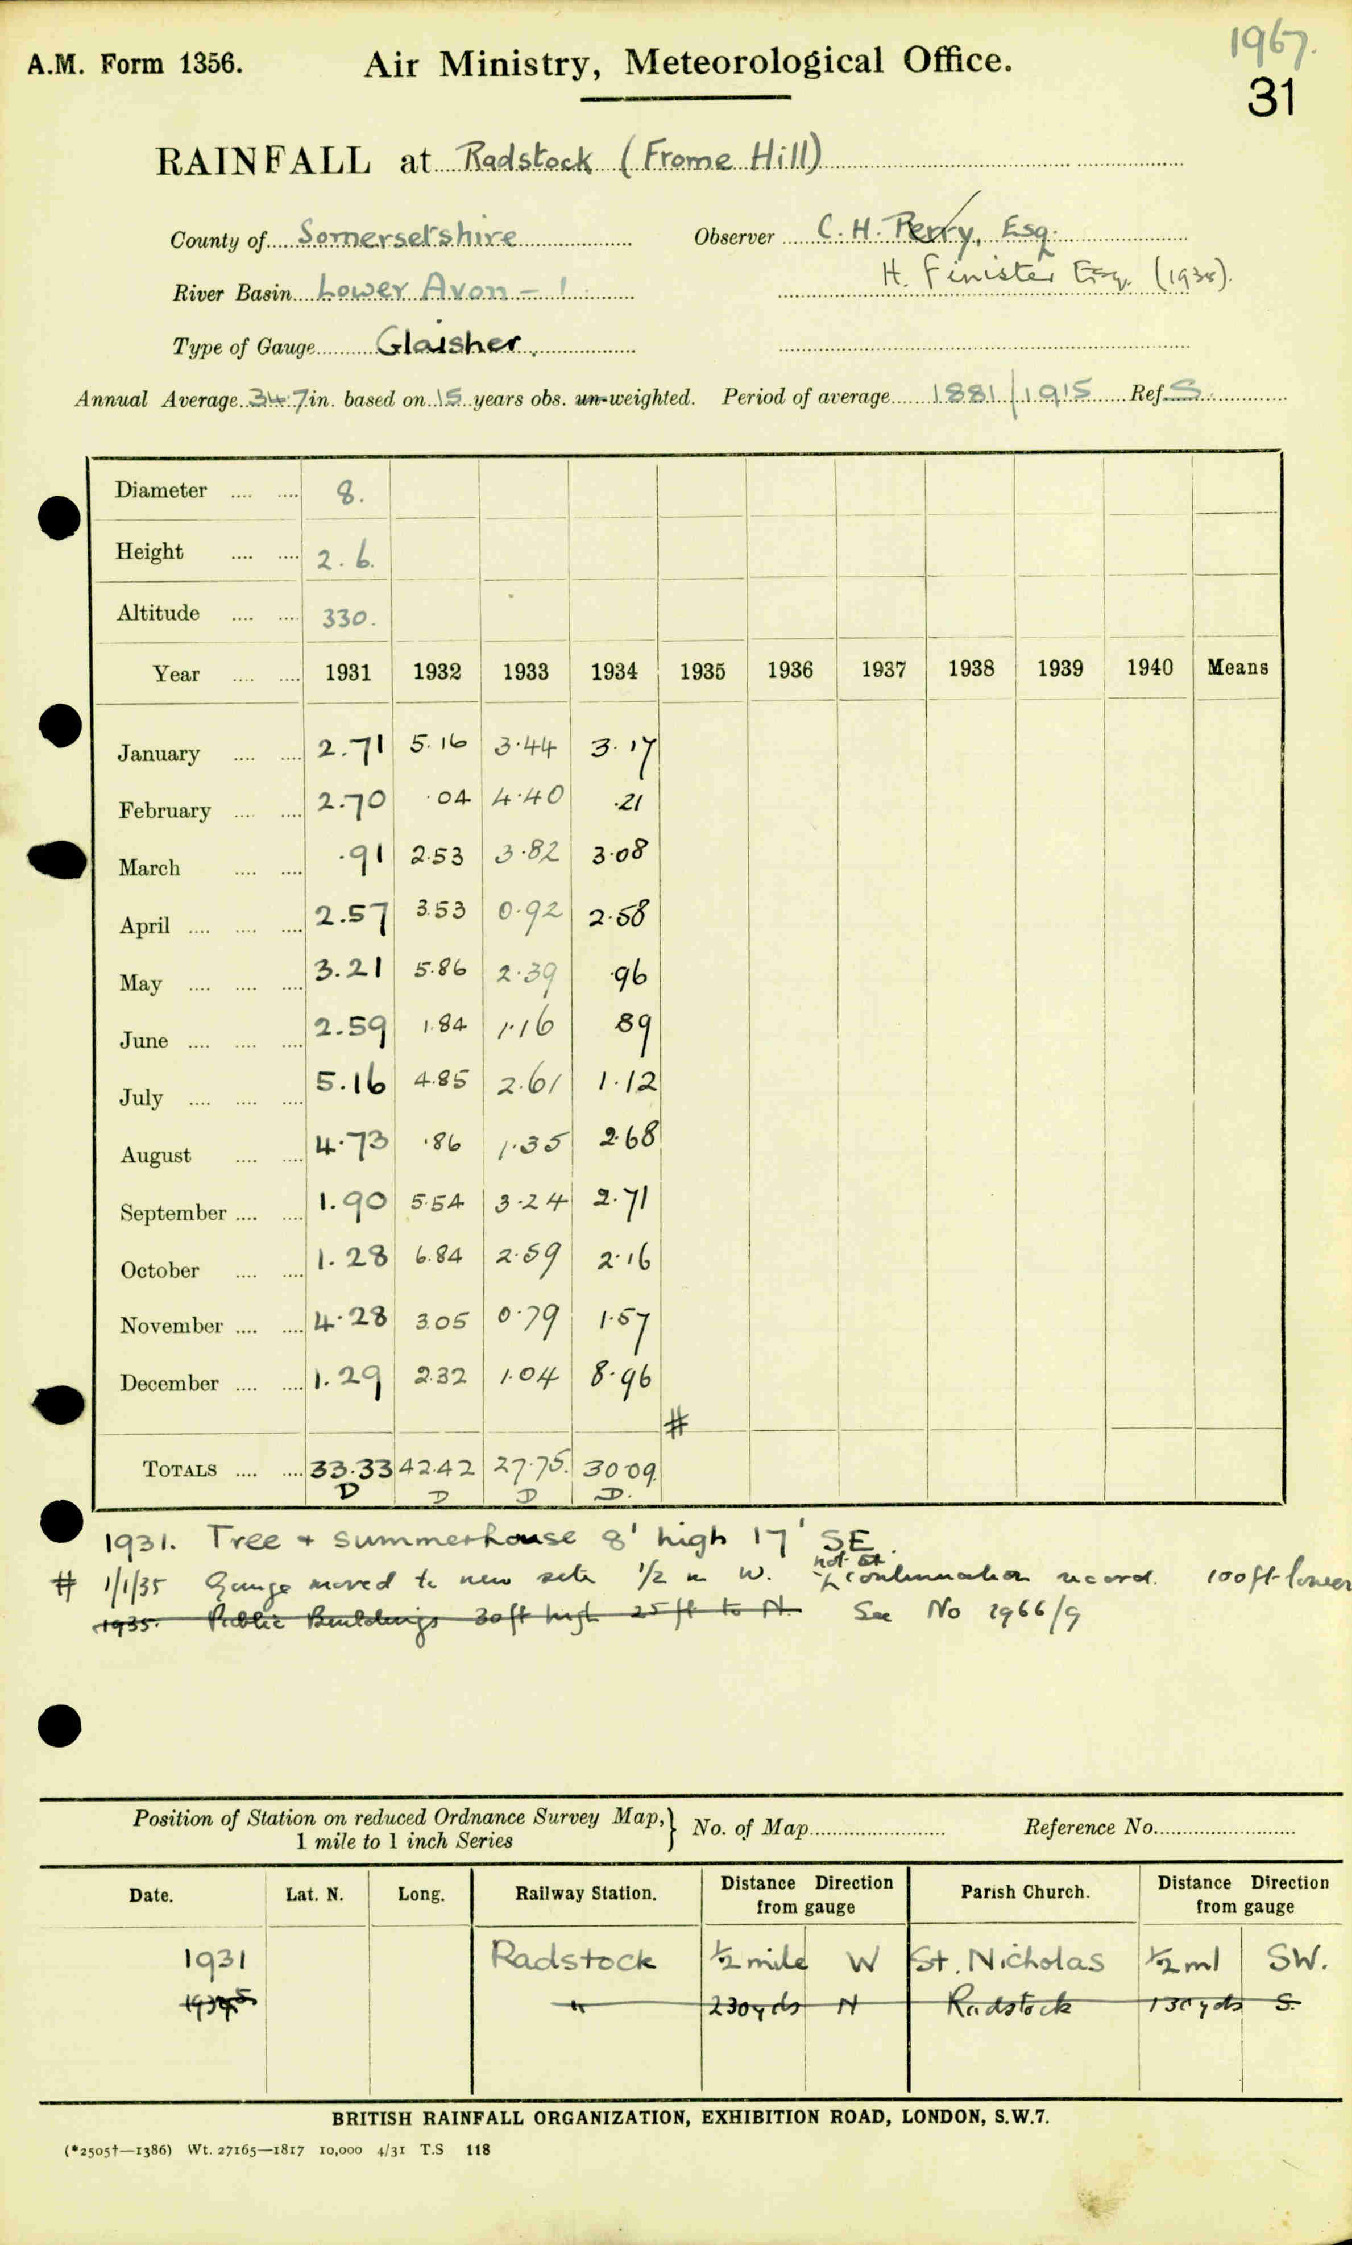 1967.
A.M. Form 1356. Air Ministry, Meteorological Office. 31
RAINFALL at Radstock (Frome Hill)
County of Somersetshire Observer C. H. Perry, Esq.
River Basin Lower Avon – 1 H. Finister Esq. (1935).
Type of Gauge Glaisher.
Annual Average 34.7 in. based on 15 years obs. un-weighted. Period of average 1881/1915 Ref. S.
Diameter 8.
Height 2.6.
Altitude 330.
Year 1931 1932 1933 1934 1935 1936 1937 1938 1939 1940 Means
January 2.71 5.16 3.44 3.17
February 2.70 .04 4.40 .21
March .91 2.53 3.82 3.08
April 2.57 3.53 0.92 2.58
May 3.21 5.86 2.39 .96
June 2.59 1.84 1.16 89
July 5.16 4.85 2.61 1.12
August 4.73 .86 1.35 2.68
September 1.90 5.54 3.24 2.71
October 1.28 6.84 2.59 2.16
November 4.28 3.05 0.79 1.57
December 1.29 2.32 1.04 8.96
#
TOTALS 33.33 42.42 27.75. 30.09.
D D D D.
1931. Tree + summerhouse 8' high 17' SE.
# 1/1/35 Gauge moved to new site 1/2 m W. not a continuation record. 100ft lower
1935. Public Buildings 30ft high 25ft to N. See No 1966/9
Position of Station on reduced Ordnance Survey Map, } No. of Map Reference No.
1 mile to 1 inch Series
Date. Lat. N. Long. Railway Station. Distance Direction from gauge Parish Church. Distance Direction from gauge
1931 Radstock 1/2 mile W St. Nicholas 1/2 ml SW.
1935 " 230 yds N Radstock 130 yds S.
BRITISH RAINFALL ORGANIZATION, EXHIBITION ROAD, LONDON, S.W.7.
(*2505†—1386) Wt. 27165—1817 10,000 4/31 T.S 118